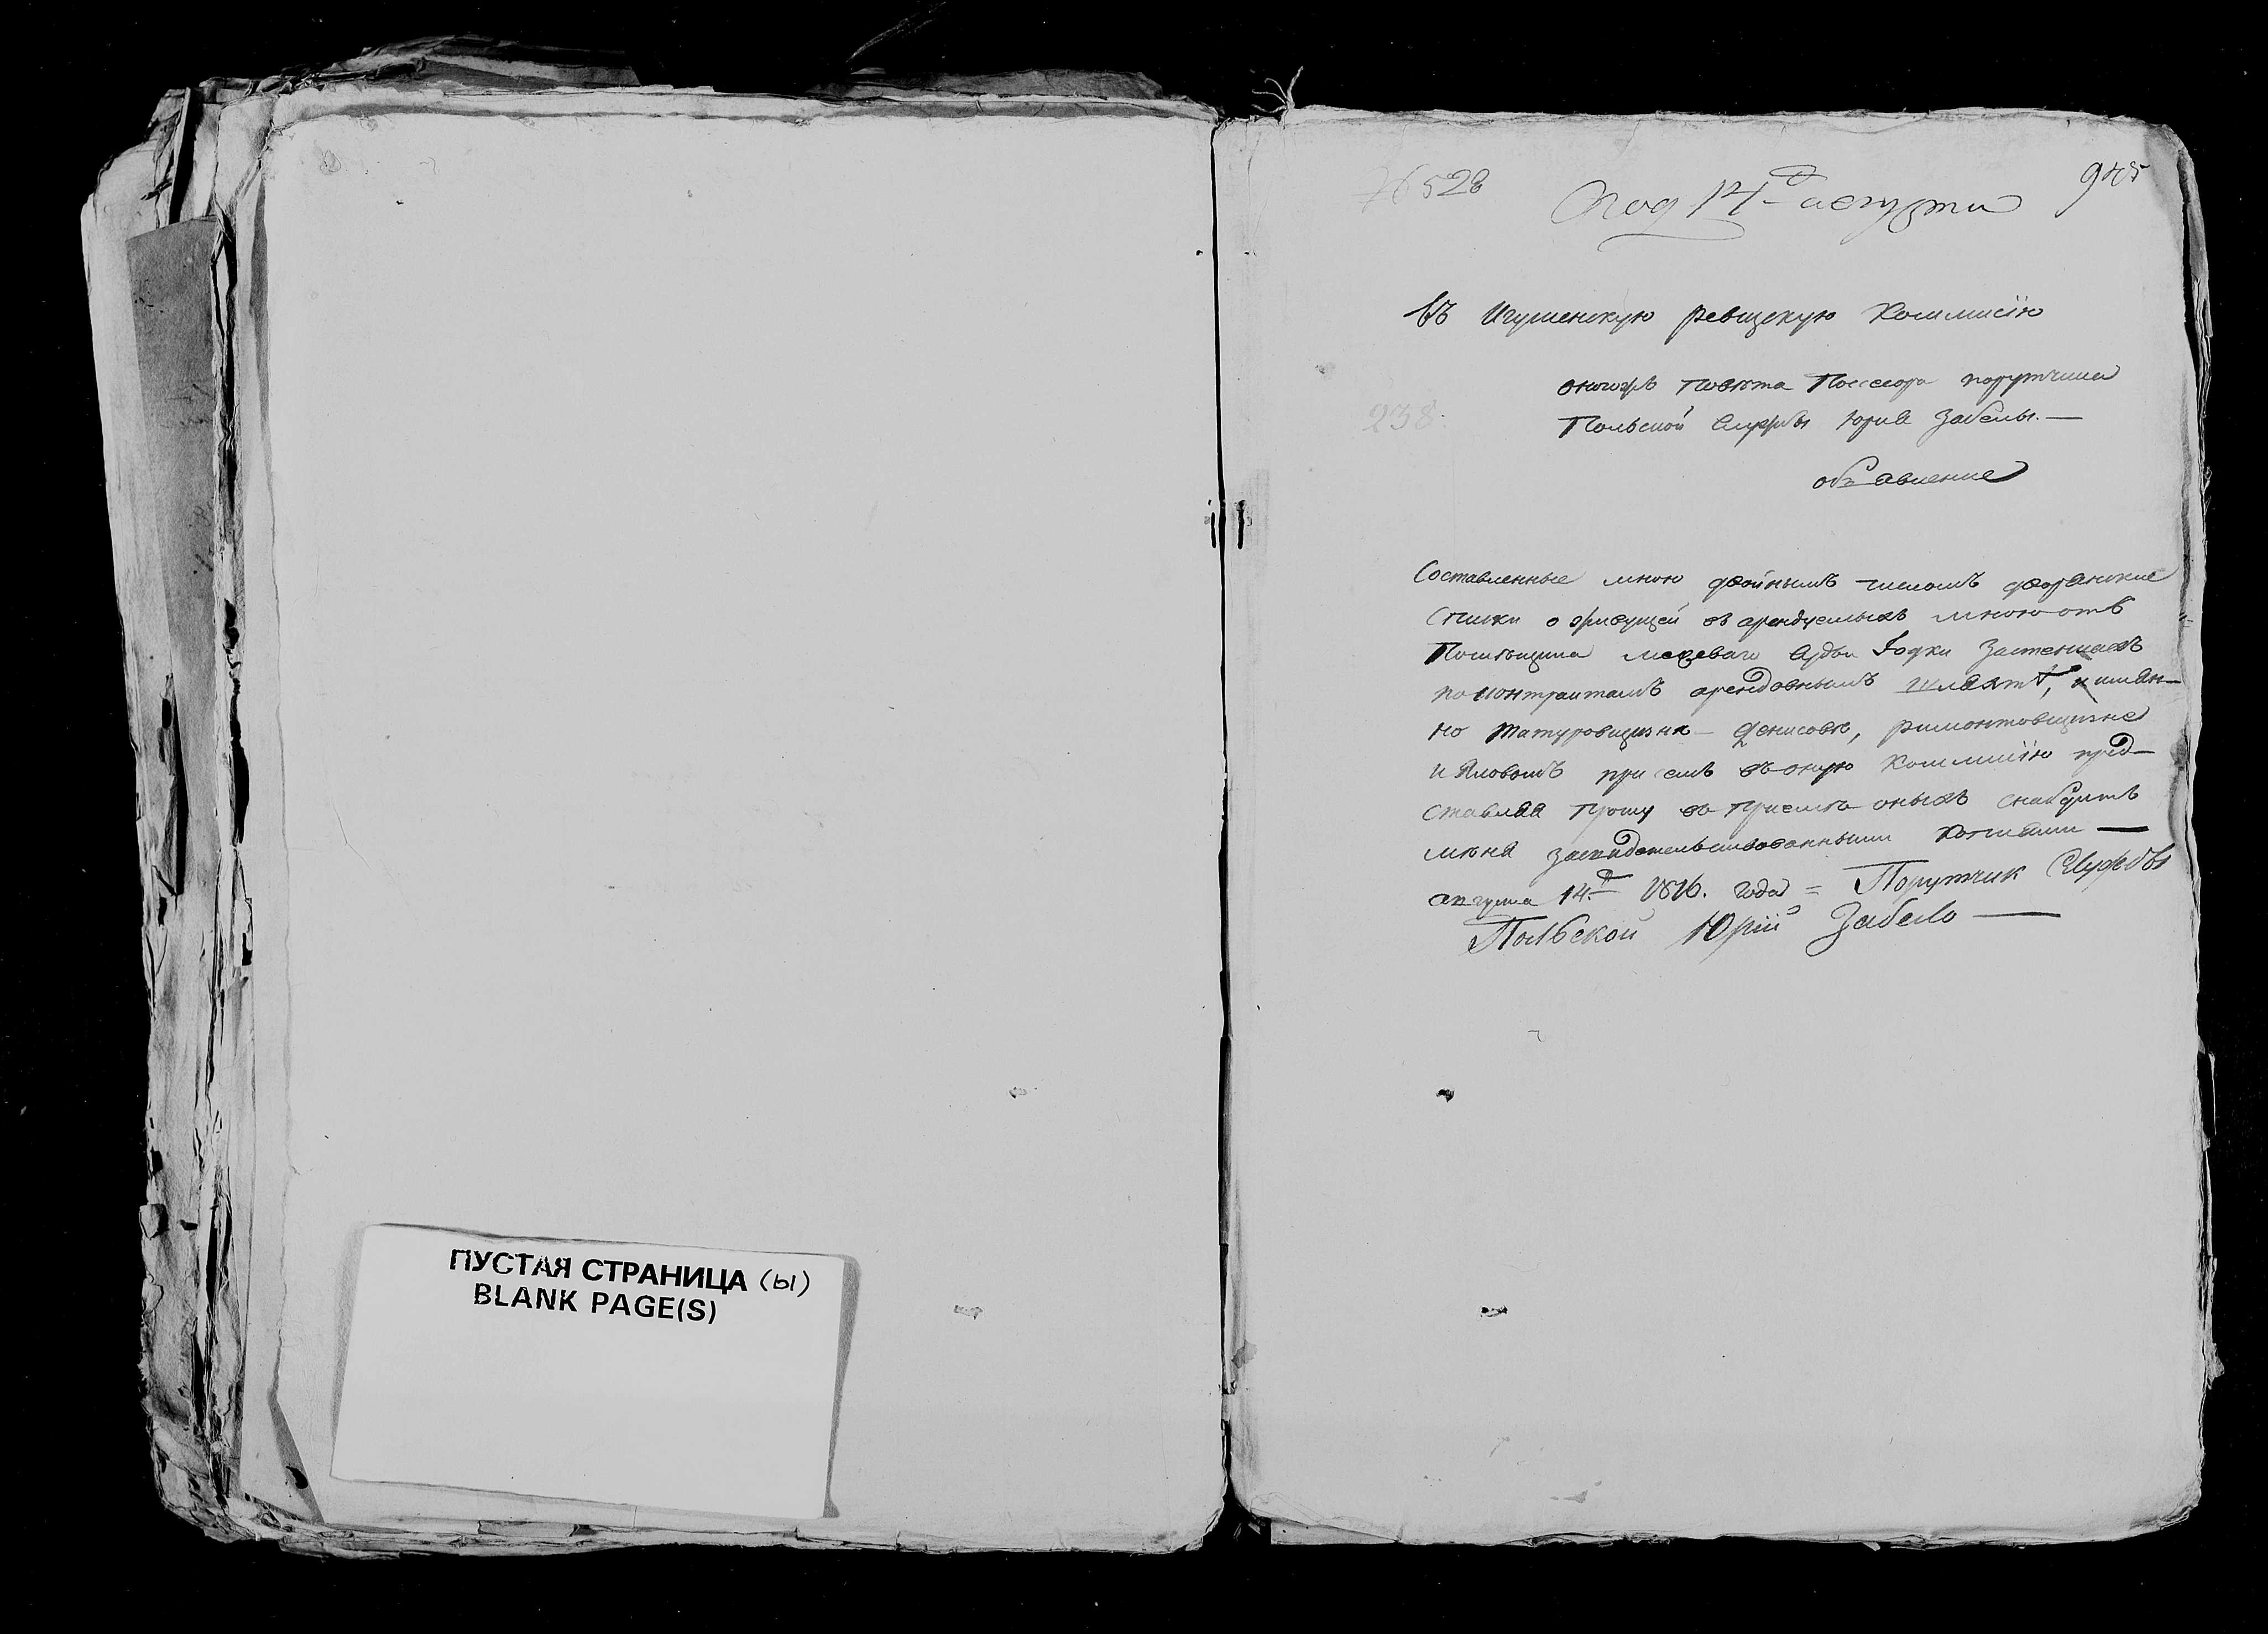 ПУСТАЯ СТРАНИЦА (ы)
BLANK PAGE(S)
528
945
Под 14 августа
Въ Игуменскую ревизскую Коммисію
оногожъ повѣта Поссесора порутчика
238.
Польской службы Юрія Забелы.—
объявление
Составленные мною двойнымъ числомъ дворянские
списки о живущей въ арендуемыхъ мною отъ
Помѣщика Іодки Застенкахъ
по контрактамъ арендовнымъ шляхтѣ, имян-
но Татуровщизнѣ Денисовѣ, римонтовщизне
и Яловомъ при семъ въ оную Коммисію пред-
ставляя прошу въ приемѣ оныхъ снабдить
мѣня засвидетельствованными копиями —
августа 14. 1816. года = Порутчик Службы
Польской Юрій Забело —